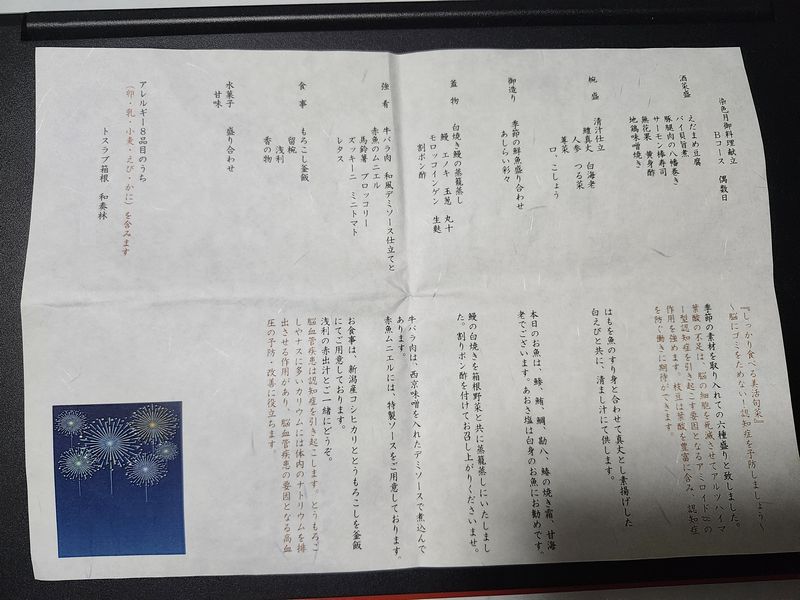 染色月御料理献立
Bコース　偶数日
酒菜盛
えだまめ豆腐
バイ貝旨煮
豚腿肉の八幡巻き
サーモン棒寿司
無花果　黄身酢
地鶏味噌焼き
椀　盛
清汁仕立
鱧真丈　白海老
人参　つる菜
蓴菜
口、こしょう
御造り
季節の鮮魚盛り合わせ
あしらい彩々
蓋　物
白焼き鰻の蒸籠蒸し
鰻　エノキ　玉葱　丸十
モロッコインゲン　生麩
割ポン酢
強　肴
牛バラ肉　和風デミソース仕立てと
赤魚のムニエル
馬鈴薯　ブロッコリー
ズッキーニ　ミニトマト
レタス
食　事
もろこし釜飯
留椀
浅利
香の物
水菓子
甘味
盛り合わせ
アレルギー8品目のうち
（卵・乳・小麦・えび・かに）を含みます
トスラブ箱根　和奏林
『しっかり食べる美活旬菜』
～脳にゴミをためない！認知症を予防しましょう～
季節の素材を取り入れての六種盛りと致しました。
葉酸の不足は、脳の細胞を死滅させてアルツハイマ
ー型認知症を引き起こす要因となるアミロイドβの
作用を強めます。枝豆は葉酸を豊富に含み　認知症
を防ぐ働きに期待ができます。
はもを魚のすり身と合わせて真丈とし素揚げした
白えびと共に、清まし汁にて供します。
本日のお魚は、鰺、鮪、鯛、勘八、鰆の焼き霜、甘海
老でございます。あおさ塩は白身のお魚にお勧めです。
鰻の白焼きを箱根野菜と共に蒸籠蒸しにいたしまし
た。割りポン酢を付けてお召し上がりくださいませ。
牛バラ肉は、西京味噌を入れたデミソースで煮込んで
あります。
赤魚ムニエルには、特製ソースをご用意しております。
お食事は、新潟産コシヒカリととうもろこしを釜飯
にてご用意しております。
浅利の赤出汁とご一緒にどうぞ。
脳血管疾患は認知症を引き起こします。とうもろこ
しやナスに多いカリウムには体内のナトリウムを排
出させる作用があり、脳血管疾患の要因となる高血
圧の予防・改善に役立ちます。